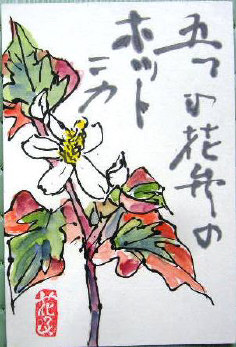 五つの花弁の
ホット
ニカ
花子